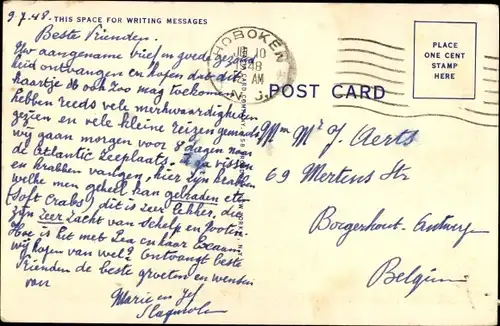 9.7.48. THIS SPACE FOR WRITING MESSAGES
Beste Vrienden.
Uw aangename brief in goede gezond
heid ontvangen en hopen dat dit
kaartje U ook zoo mag toekomen.
hebben reeds vele merkwaardigheden
gezien en vele kleine reizen gemaakt
wij gaan morgen voor 8 dagen naar
de Atlantic Zeeplaats. vissen
en krabben vangen, hier zijn krabben
welke men geheel kan gebraden eten
(Soft Crabs) dit is zeer lekker, die
zijn zeer zacht van schelp en pooten
Hoe is het met Lea en haar Exaam
wij hopen van wel? Ontvangt beste
Vrienden de beste groeten en wensen
van
Marie en Jef
HOBOKEN
10
1948
AM
N. J.
PLACE
ONE CENT
STAMP
HERE
POST CARD
Mr J. Aerts
69 Mertens Str
Borgerhout-Antwerp
Belgium